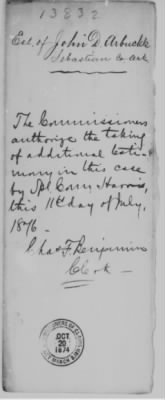 13832
Est. of John D. Arbuckle
Sebastian Co Ark
The Commissioners
authorize the taking
of additional testi-
mony in this case
by Spl Com Harris,
this 11th day of July,
1876.
Chas F. Benjamin
Clerk
OCT
20
1874